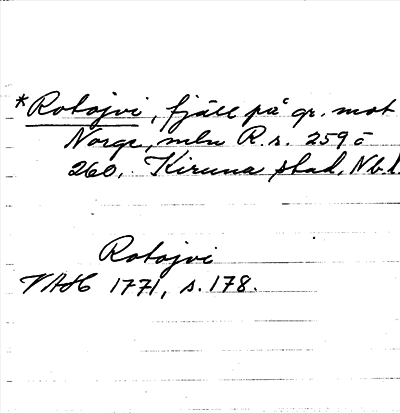 *Rotojvi, fjäll på gr. mot
Norge, mln R.r. 259 o
260, Kiruna stad, Nb.l.
Rotojvi
VAH 1771, s. 178.